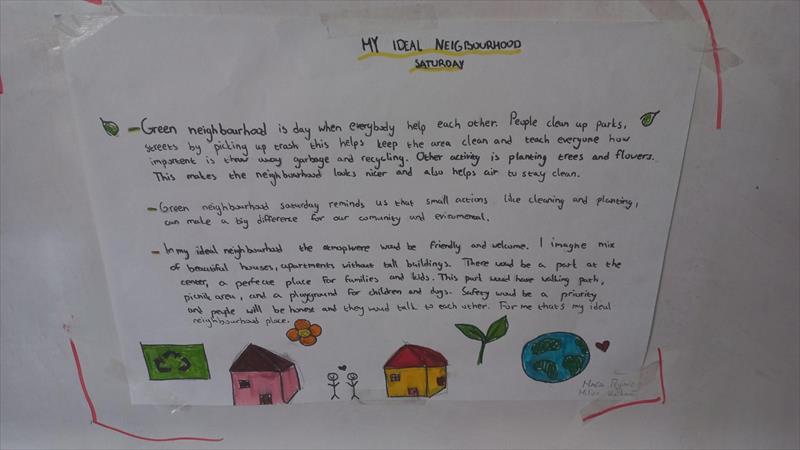 MY IDEAL NEIGBOURHOOD
SATURDAY
- Green neighbourhood is day when everybody help each other. People clean up parks,
streets by picking up trash this helps keep the area clean and teach everyone how
important is throw away garbage and recycling. Other activity is planting trees and flowers.
This makes the neighbourhood looks nicer and also helps air to stay clean.
- Green neighbourhood saturday reminds us that small actions like cleaning and planting,
can make a big difference for our comunity and enviromental.
- In my ideal neighbourhood the atmosphere woud be friendly and welcome. I imagine mix
of beautiful houses, apartments without tall buildings. There woud be a park at the
center, a perfecue place for families and kids. This park woud have walking path,
picnik area, and a playground for children and dogs. Safety woud be a priority
and people will be honest and they woud talk to each other. For me that's my ideal
neighbourhood place.